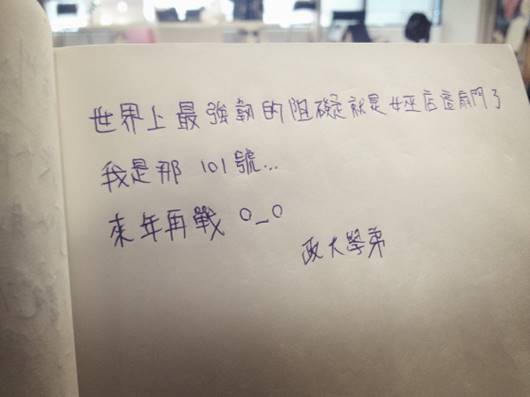 世界上最強韌的阻礙就是女巫店這扇門了
我是那 101號...
來年再戰 O_O
政大學弟